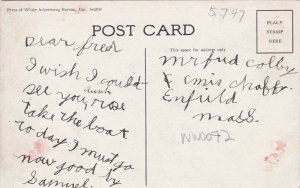 Press of White Advertising Bureau, Inc., Seattle
5-747
POST CARD
PLACE
STAMP
HERE
This space for address only
Dear fred
I wish I could
see you aunt rose
take the boat
to day I must go
now good by
Samuel
mr fred colby
Enfield
mass.
WW0092